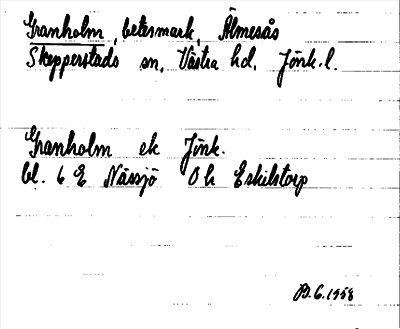 Granholm, betesmark, Älmesås
Skepperstads sn, Västra hd, Jönk. l.
Granholm ek Jönk.
bl. 6 E Nässjö Oh Eskilstorp
B.G. 1958